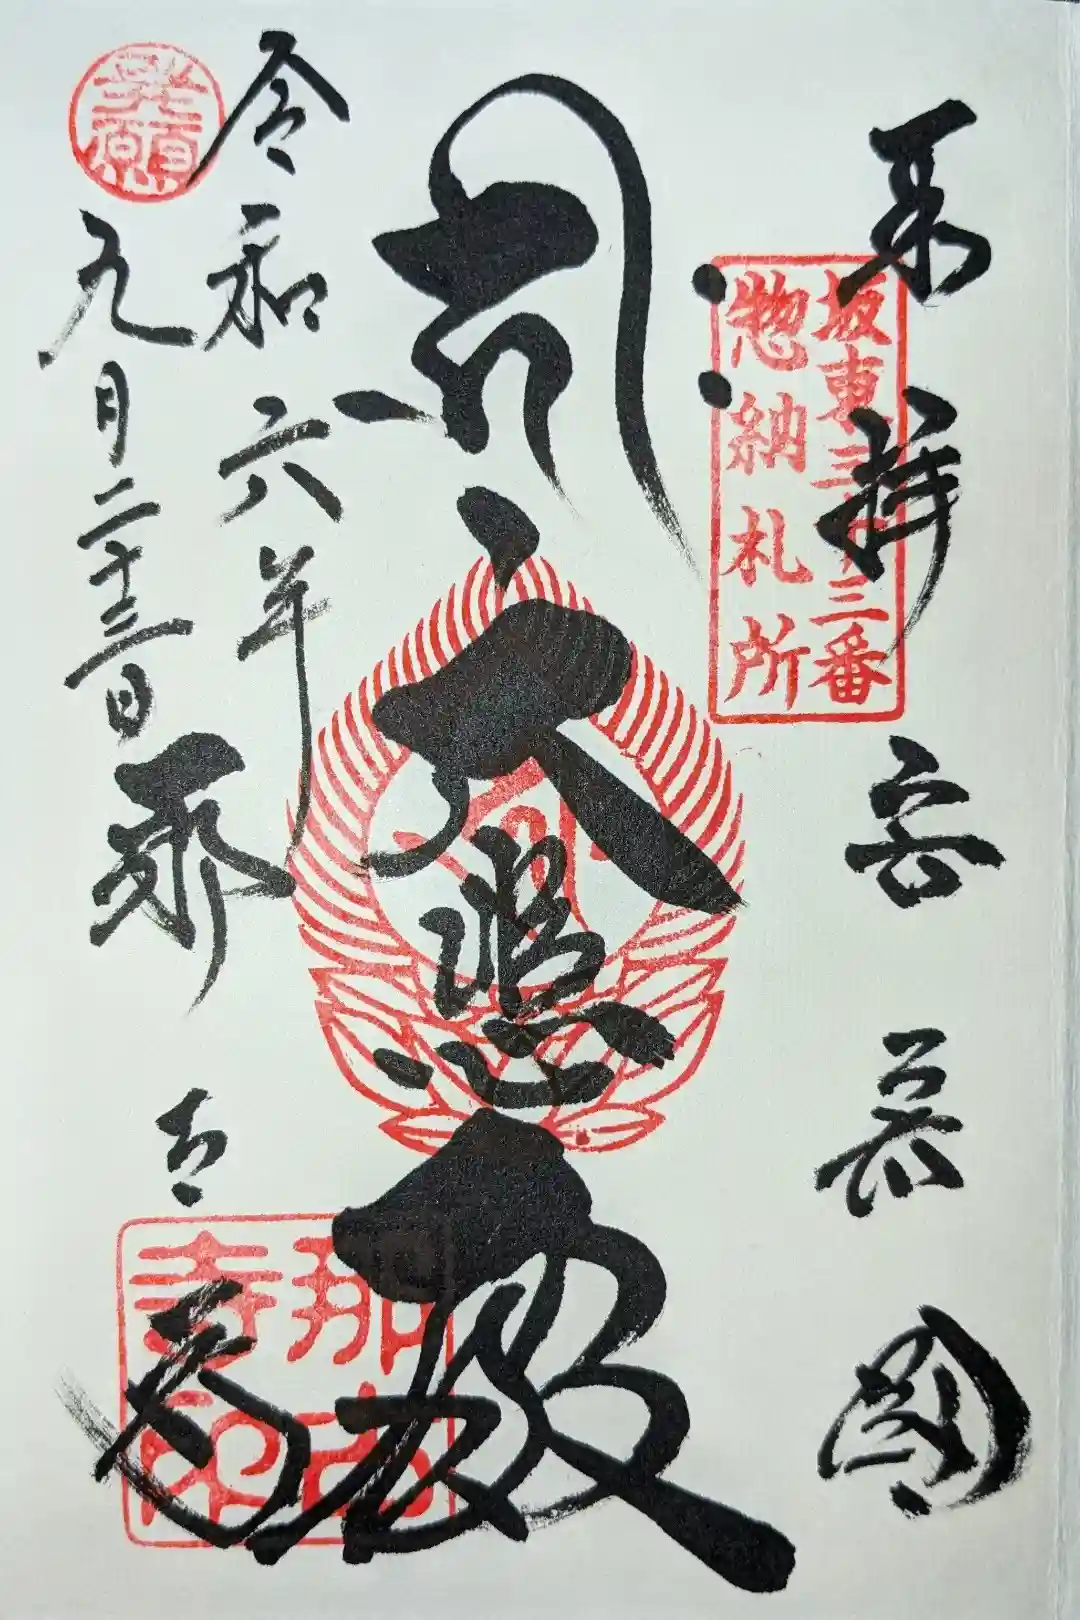 奉拝 安房國
坂東三十三番
惣納札所
大悲殿
令和六年
九月二十三日
那古寺
那古
寺印